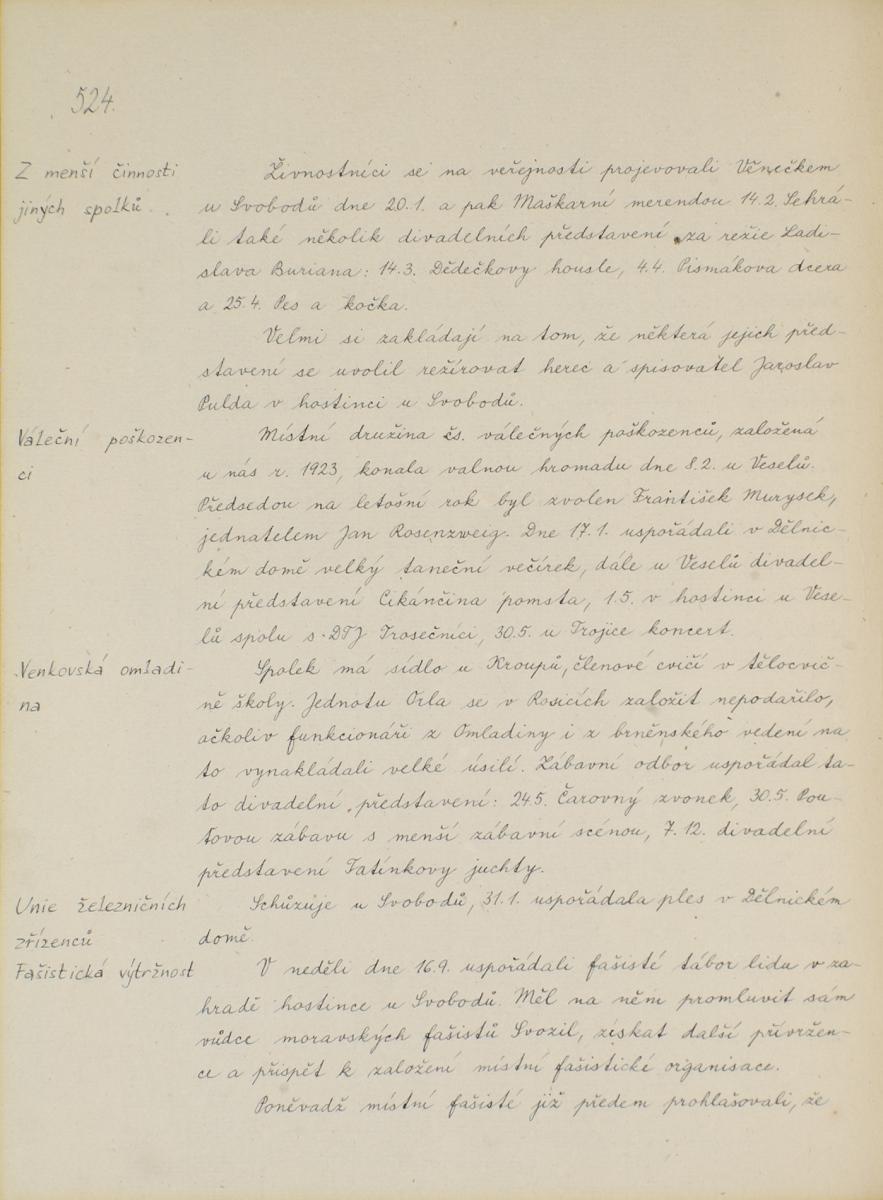 524.
Z menší činnosti
jiných spolků.
Živnostníci se na veřejnosti projevovali Věnečkem
u Svobodů dne 20.1. a pak Maškarní merendou 14.2. Sehrá-
li také několik divadelních představení za režie Ladi-
slava Buriana: 14.3. Dědečkovy housle, 4.4. Pismákova dcera
a 25.4. Pes a kočka.
Velmi si zakládají na tom, že některá jejich před-
stavení se uvolil režírovat herec a spisovatel Jaroslav
Pulda v hostinci u Svobodů.
Váleční poškozen-
ci
Místní družina čs. válečných poškozenců, založená
u nás r. 1923, konala valnou hromadu dne 8.2. u Veselů.
Předsedou na letošní rok byl zvolen František Murysek,
jednatelem Jan Rosenzweig. Dne 17.1. uspořádali v Dělnic-
kém domě velký taneční večírek, dále u Veselů divadel-
ní představení Cikánčina pomsta, 1.5. v hostinci u Vese-
lů spolu s DTJ Trosečníci, 30.5. u Trojice koncert.
Venkovská omladi-
na
Spolek má sídlo u Kroupů, členové cvičí v tělocvič-
ně školy. Jednotu Orla se v Rosicích založit nepodařilo,
ačkoliv funkcionáři z Omladiny i z brněnského vedení na
to vynakládali velké úsilí. Zábavní odbor uspořádal ta-
to divadelní představení: 24.5. Čarovný zvonek, 30.5. Pou-
ťovou zábavu s menší zábavní scénou, 7.12. divadelní
představení Tatínkovy juchty.
Unie železničních
zřízenců
Schůzuje u Svobodů, 31.1. uspořádala ples v Dělnickém
domě.
Fašistická výtržnost
V neděli dne 16.9. uspořádali fašisté tábor lidu v za-
hradě hostince u Svobodů. Měl na něm promluvit sám
vůdce moravských fašistů Svozil, získat další přívržen-
ce a přispět k založení místní fašistické organisace.
Poněvadž místní fašisté již předem prohlašovali, že